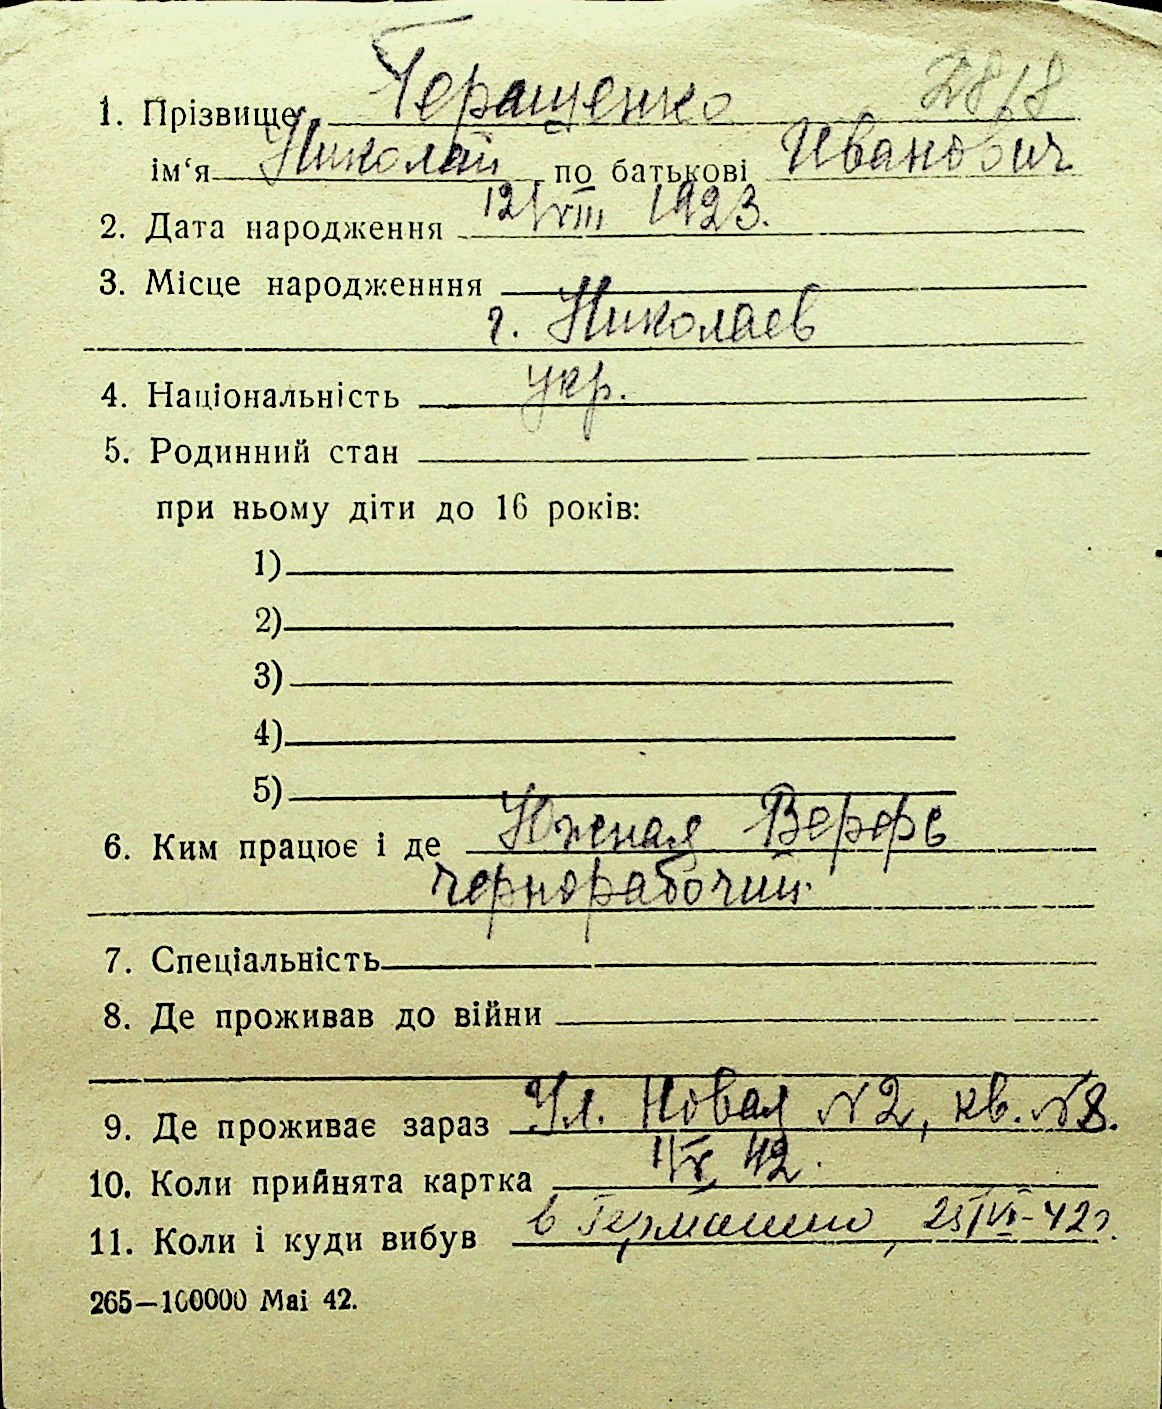 2818
1. Прізвище Геращенко
ім‘я Николай по батькові Иванович
2. Дата народження 12/VIII 1923.
3. Місце народженння
г. Николаев
4. Національність укр.
5. Родинний стан
при ньому діти до 16 років:
1)
2)
3)
4)
5)
6. Ким працює і де Южная Верфь
чернорабочий
7. Спеціальність
8. Де проживав до війни
9. Де проживає зараз Ул. Новая №2, кв. №8.
10. Коли прийнята картка 42.
11. Коли і куди вибув в Германию, 25/VI-42г.
265—100000 Mai 42.